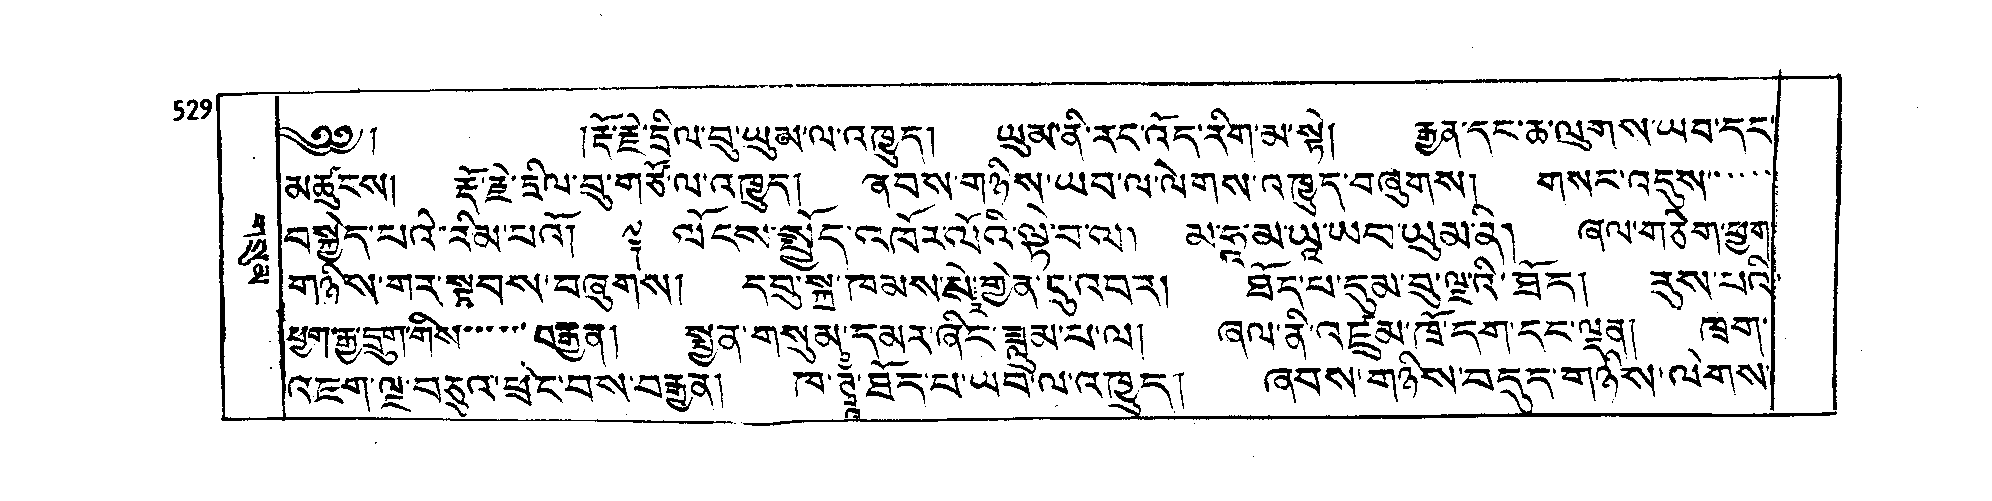 529
༄༅། །རྡོ་རྗེ་དྲིལ་བུ་ཡུམ་ལ་འཁྱུད། ཡུམ་ནི་རང་འོད་རིག་མ་སྟེ། རྒྱན་དང་ཆ་ལུགས་ཡབ་དང་
མཚུངས། རྡོ་རྗེ་དྲིལ་བུ་གཙོ་ལ་འཁྱུད། ཞབས་གཉིས་ཡབ་ལ་ལེགས་འཁྱུད་བཞུགས། གསང་འདུས་་་་་་
བསྐྱེད་པའི་རིམ་པའོ། ༔ ལོངས་སྤྱོད་འཁོར་ལོའི་ལྟེ་བ་ལ། མ་ཧཱ་མ་ཡཱ་ཡབ་ཡུམ་ནི། ཞལ་གཅིག་ཕྱག
གཉིས་གར་སྟབས་བཞུགས། དབུ་སྐྲ་ཁམས་སྤྲེ་གྱེན་དུ་འབར། ཐོད་པ་དུམ་བུ་ལྔ་འི་ཐོད། རུས་པའི་
ཕྱག་རྒྱ་དྲུག་གིས་་་་་་་བརྒྱན། སྤྱན་གསུམ་དམར་ཞིང་ཟླུམ་པ་ལ། ཞལ་ནི་འཛུམ་ཁྲོ་དག་དང་ལྡན། ཁྲག་
འཛག་ལྔ་བཅུའི་ཕྲེང་བས་བརྒྱན། ཁ་ཊྭཱཾ་ཐོད་པ་ཡབ་ལ་འཁྱུད། ཞབས་གཉིས་བདུད་གཉིས་ལེགས་